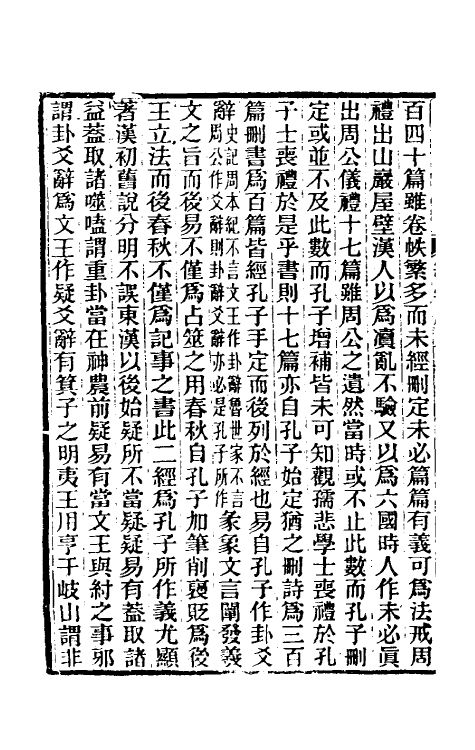 百四十篇雖卷帙繁多而未經刪定未必篇篇有義可為法戒周
禮出山巖屋壁漢人以為瀆亂不驗又以為六國時人作未必眞
出周公儀禮十七篇雖周公之遺然當時或不止此數而孔子刪
定或並不及此數而孔子增補皆未可知觀孺悲學士喪禮於孔
子士喪禮於是乎書則十七篇亦自孔子始定猶之刪詩為三百
篇刪書為百篇皆經孔子手定而後列於經也易自孔子作卦爻
辭史記周本紀不言文王作卦辭魯世家不言周公作爻辭則卦辭爻辭亦必是孔子所作彖象文言闡發義
文之旨而後易不僅為占筮之用春秋自孔子加筆削褒貶為後
王立法而後春秋不僅為記事之書此二經為孔子所作義尤顯
著漢初舊說分明不誤東漢以後始疑所不當疑疑易有蓋取諸
益蓋取諸噬嗑謂重卦當在神農前疑易有當文王與紂之事邪
謂卦爻辭為文王作疑爻辭有箕子之明夷王用亨于岐山謂非